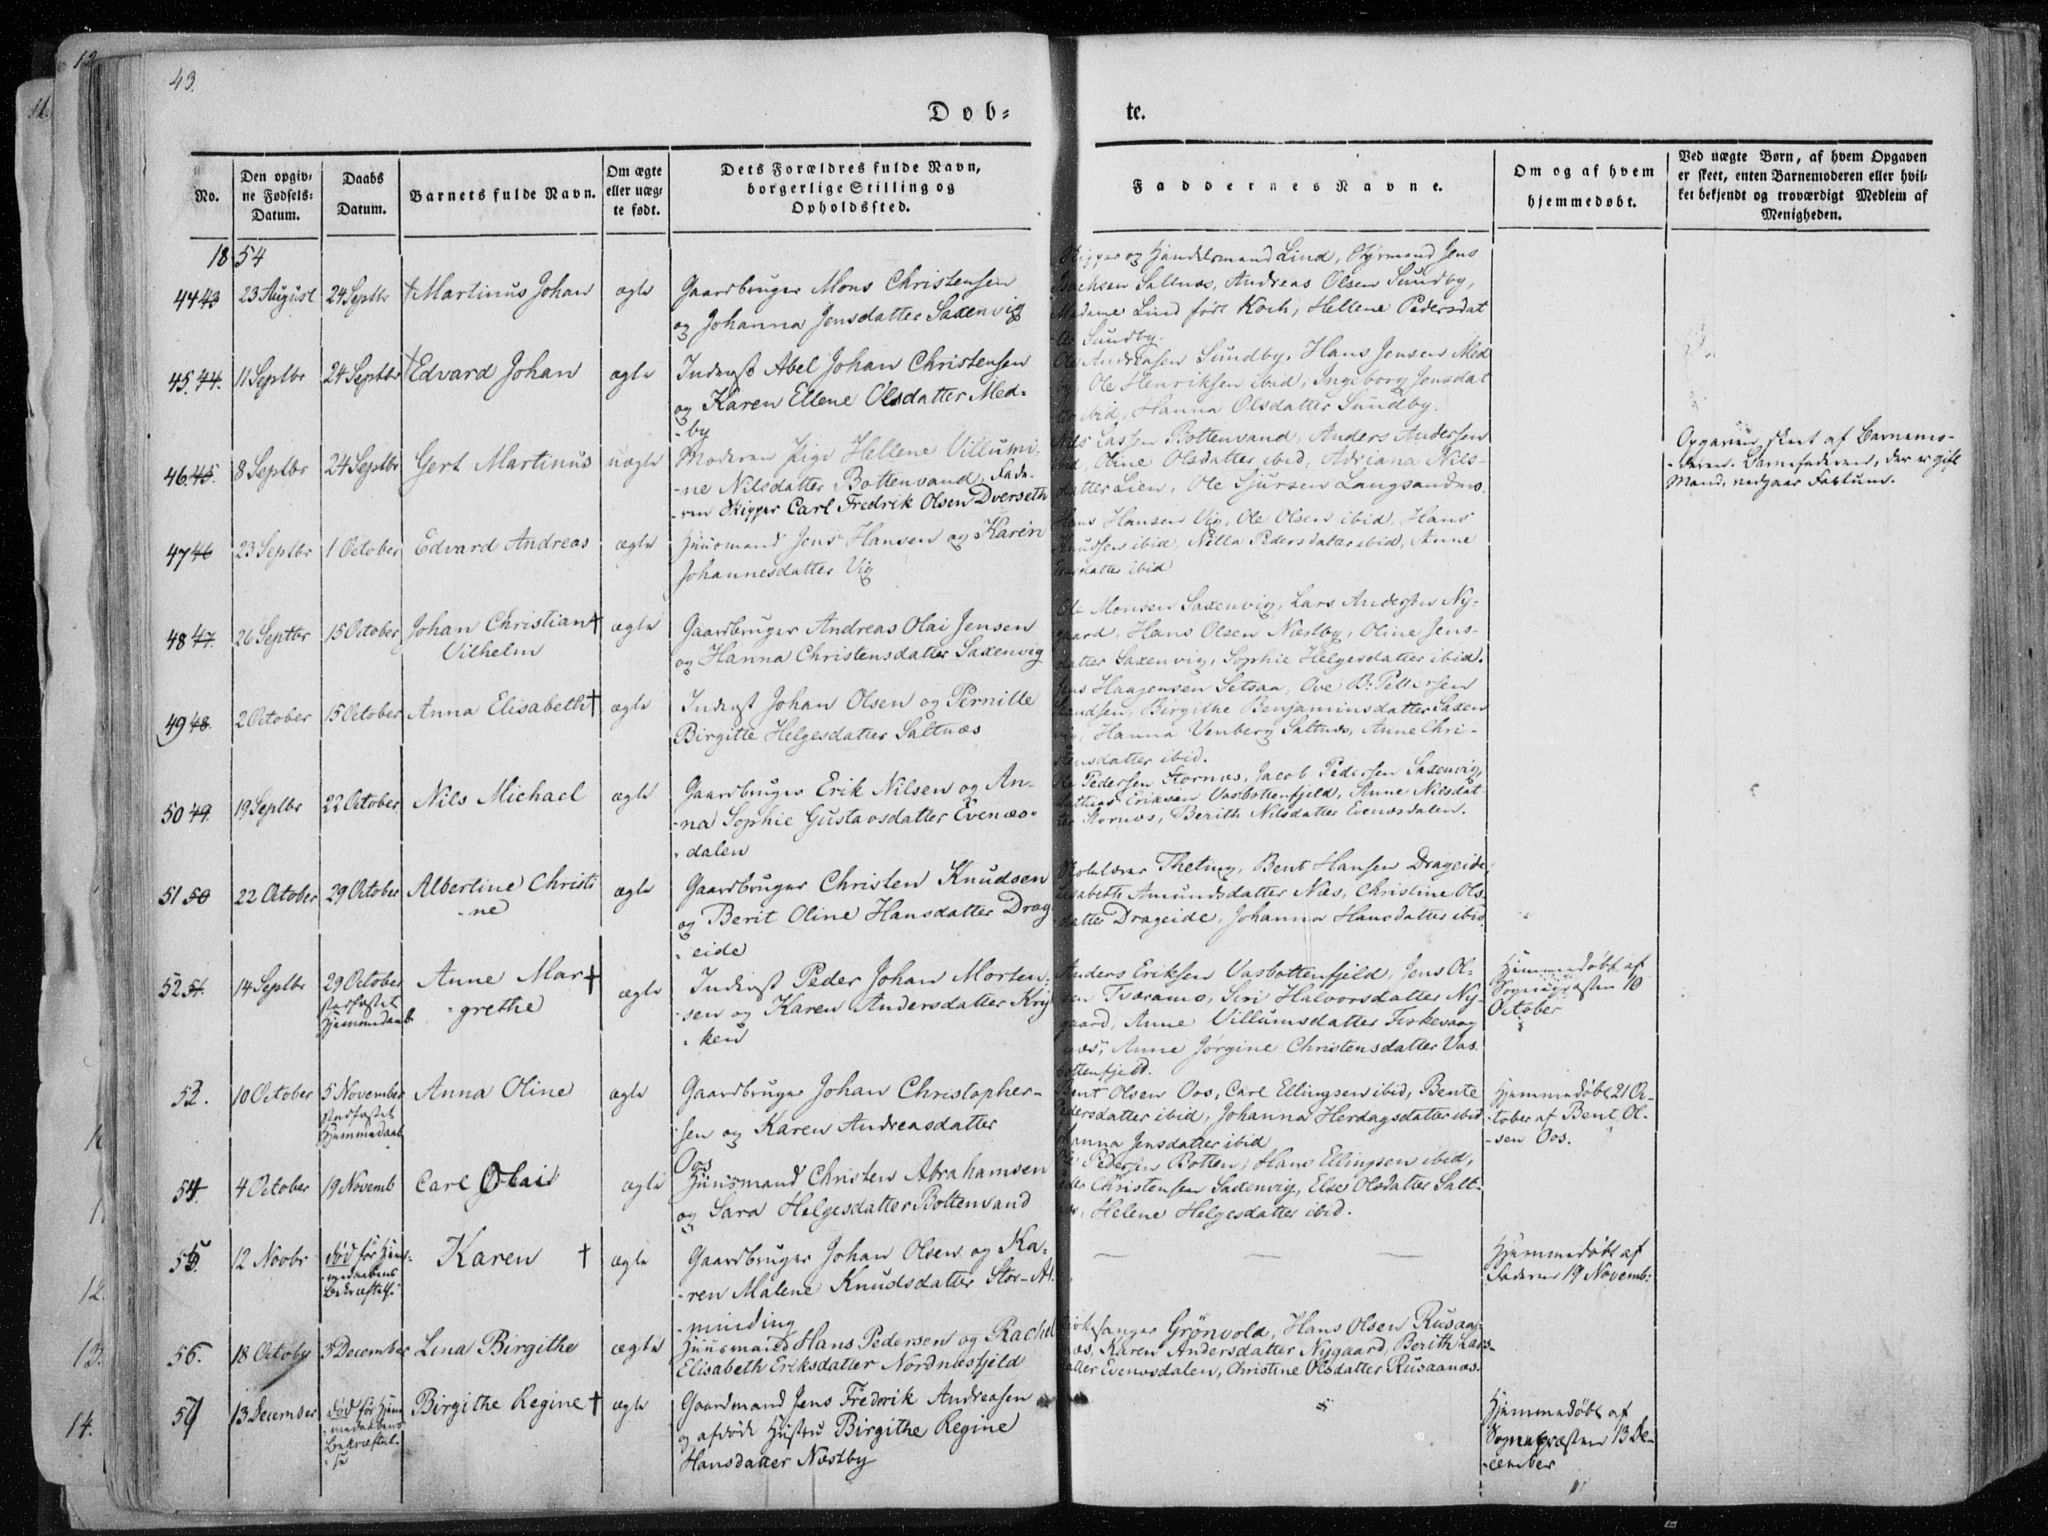 43.
Døb-
te.
No.
Den opgiv-
ne Fødsels-
Datum.
Daabs
Datum.
Barnets fulde Navn.
Om ægte
eller uæg-
te født.
Dets Forældres fulde Navn,
borgerlige Stilling og
Opholdssted.
Faddernes Navne.
Om og af hvem
hjemmedøbt.
Ved uægte Børn, af hvem Opgaven
er skeet, enten Barnemoderen eller hvil-
ket bekjendt og troværdigt Medlem af
Menigheden.
1854
44 43 23 August 24 Septbr † Martinus Johan ægte
Gaardbruger Mons Christensen
og Johanna Jensdatter Saxenvig
og Handelsmand Lind, Styrmand Jens
Saltnæs, Andreas Olsen Sundby,
Madame Lind født Koch, Hellene Pedersdat
Sundby.
45. 44. 11 Septbr 24 Septbr † Edvard Johan ægte
Inderst Abel Johan Christensen
og Karen Ellene Olsdatter Med-
-by
Ole Andreasen Sundby, Hans Jensen Med
by, Ole Henriksen ibid, Ingeborg Jensdat
ter ibid, Hanna Olsdatter Sundby.
46. 45. 8 Septbr 24 Septbr Gert Martinus uægte
Moderen Pige Hellene Villumi-
-ne Nilsdatter Bottenvand, Fade-
-ren Skipper Carl Fredrik Olsen Dverseth
Nils Bottenvand, Anders Andersen
ibid, Oline Olsdatter ibid, Adriana Nils-
datter Lien, Ole Sjursen Langsandmo.
Opgaven skeet af Barnemo-
-deren. Barnefaderen, der er gift
Mand, vedgaar Factum.
47 46 23 Septbr 1 October Edvard Andreas ægte
Huusmand Jens Hansen og Karen
Johannesdatter Vig
Hans Hansen Vig, Ole Olsen ibid, Hans
Knudsen ibid, Nilla Pedersdatter ibid, Anne
datter ibid
48 47. 26 Septbr 15 October Johan Christian † ægte
Vilhelm
Gaardbruger Andreas Olai Jensen
og Hanna Christensdatter Saxenvig
Ole Monsen Saxenvig, Lars Andersen Ny-
gaard, Hans Olsen Næstby, Oline Jens-
datter Saxenvig, Sophie Helgesdatter ibid.
49 48. 2 October 15 October Anna Elisabeth † ægte
Inderst Johan Olsen og Pernille
Birgitte Helgesdatter Saltnæs
Jens Haagensen Setsaa, Ove B. Pettersen
Birgithe Benjaminsdatter Saxen
vig, Hanna Venberg Saltnæs, Anne Chri-
stensdatter ibid.
50 49. 19 Septbr 22 October Nils Michael ægte
Gaardbruger Erik Nilsen og An-
-na Sophie Gustavsdatter Evenæs-
-dalen
Ole Pedersen Stornæs, Jacob Pedersen Saxenvig,
Mathias Eriksen Vasbottenfjeld, Anne Nilsdat-
ter Stornæs, Berith Nilsdatter Evenæsdalen.
51 50 22 October 29 October Albertine Christi ægte
-ne
Gaardbruger Christen Knudsen
og Berit Oline Hansdatter Drag
-eide
Skolelærer Theting, Bent Hansen Drageide,
Elisabeth Amundsdatter Næs, Christine Ols
datter Drageide, Johanna Hansdatter ibid
52 51. 14 Septbr 29 October
stadfæstet
Hjemmedaab
Anne Mar †
-grethe
ægte
Inderst Peder Johan Morten-
-sen og Karen Andersdatter Kry
-ken
Anders Eriksen Vasbottenfjeld, Jens Ol-
sen Tveramo, Siri Halvorsdatter Ny-
gaard, Anne Villumsdatter Fiskevaag
næs, Anne Jørgine Christensdatter Vas
bottenfjeld.
Hjemmedøbt af
Sognepræsten 10
October
52. 10 October 5 November
stadfæstet
Hjemmedaab
Anna Oline ægte
Gaardbruger Johan Christopher-
-sen og Karen Andreasdatter
Oos
Bent Olsen Oos, Carl Ellingsen ibid, Bente
Pedersdatter ibid, Johanna Herdagsdatter ibid
Hanna Jensdatter ibid
Hjemmedøbt 21 Oc-
-tober af Bent Ol-
-sen Oos.
54. 4 October 19 Novemb Carl Olai ægte
Huusmand Christen Abrahamsen
og Sara Helgesdatter Bottenvand
Ole Pedersen Botten, Hans Ellingsen ibid,
Peder Christensen Saxenvig, Else Olsdatter Salt-
næs, Helene Helgesdatter ibid.
55. 12 Novbr
død før Hjem-
-medaabens
Bekræftelse
Karen † ægte
Gaardbruger Johan Olsen og Ka-
-ren Malene Knudsdatter Stor-Al
-minding
Hjemmedøbt af
Faderen 19 Novemb:
56. 18 October 3 December Lina Birgithe ægte
Huusmand Hans Pedersen og Rachel
Elisabeth Eriksdatter Nordnæsfjeld
Kirkesanger Grönvold, Hans Olsen Rusaa-
næs, Karen Andersdatter Nygaard, Berith Lars-
datter Evenæsdalen, Christine Olsdatter Rusaanæs.
57 13 December
død før Hjem
-medaabens
Bekræftel-
-se
Birgithe Regine † ægte
Gaardmand Jens Fredrik Andreasen
og afdøde Hustru Birgithe Regine
Hansdatter Næstby
Hjemmedøbt af
Sognepræsten 13 De-
-cember
12
11.
12.
13.
14.